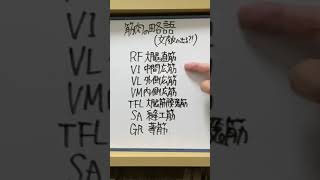 筋肉の略語
(文献に出る?!)
RF 大腿直筋
VI 中間広筋
VL 外側広筋
VM 内側広筋
TFL 大腿筋膜張筋
SA 縫工筋
GR 薄筋